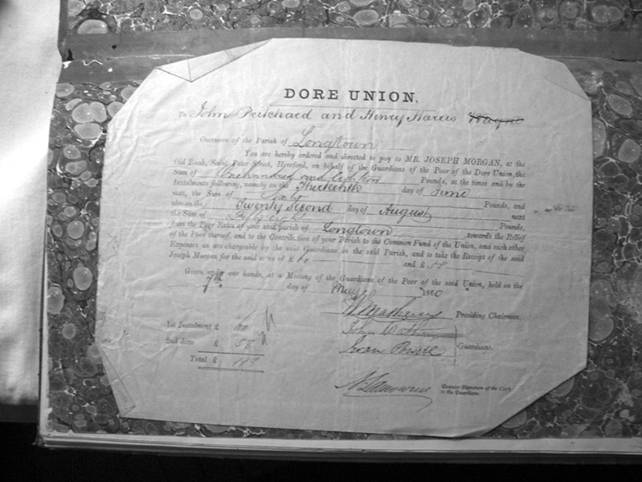 DORE UNION.
To John Pritchard and Henry Harris Wayne
Overseers of the Parish of Longtown
You are hereby ordered and directed to pay to MR. JOSEPH MORGAN, at the
Old Bank, Saint Peter Street, Hereford, on behalf of the Guardians of the Poor of the Dore Union, the
Sum of One hundred and eighteen Pounds, at the times and by the
Instalments following, namely on the Thirteenth day of June
next, the Sum of Sixty Pounds, and
on the Twenty Second day of August next
the Sum of Fifty eight Pounds,
from the Poor Rates of your said parish of Longtown towards the Relief
of the Poor thereof, and to the Contribution of your Parish to the Common Fund of the Union, and such other
Expenses as are chargeable by the said Guardians on the said Parish, and to take the Receipt of the said
Joseph Morgan for the said sums of £ 60 and £ 58
Given under our hands, at a Meeting of the Guardians of the Poor of the said Union, held on the
day of May
Presiding Chairman.
1st Instalment £ 60
2nd ditto £ 58
Total £ 118
Guardians.
Counter Signature of the Clerk
to the Guardians.